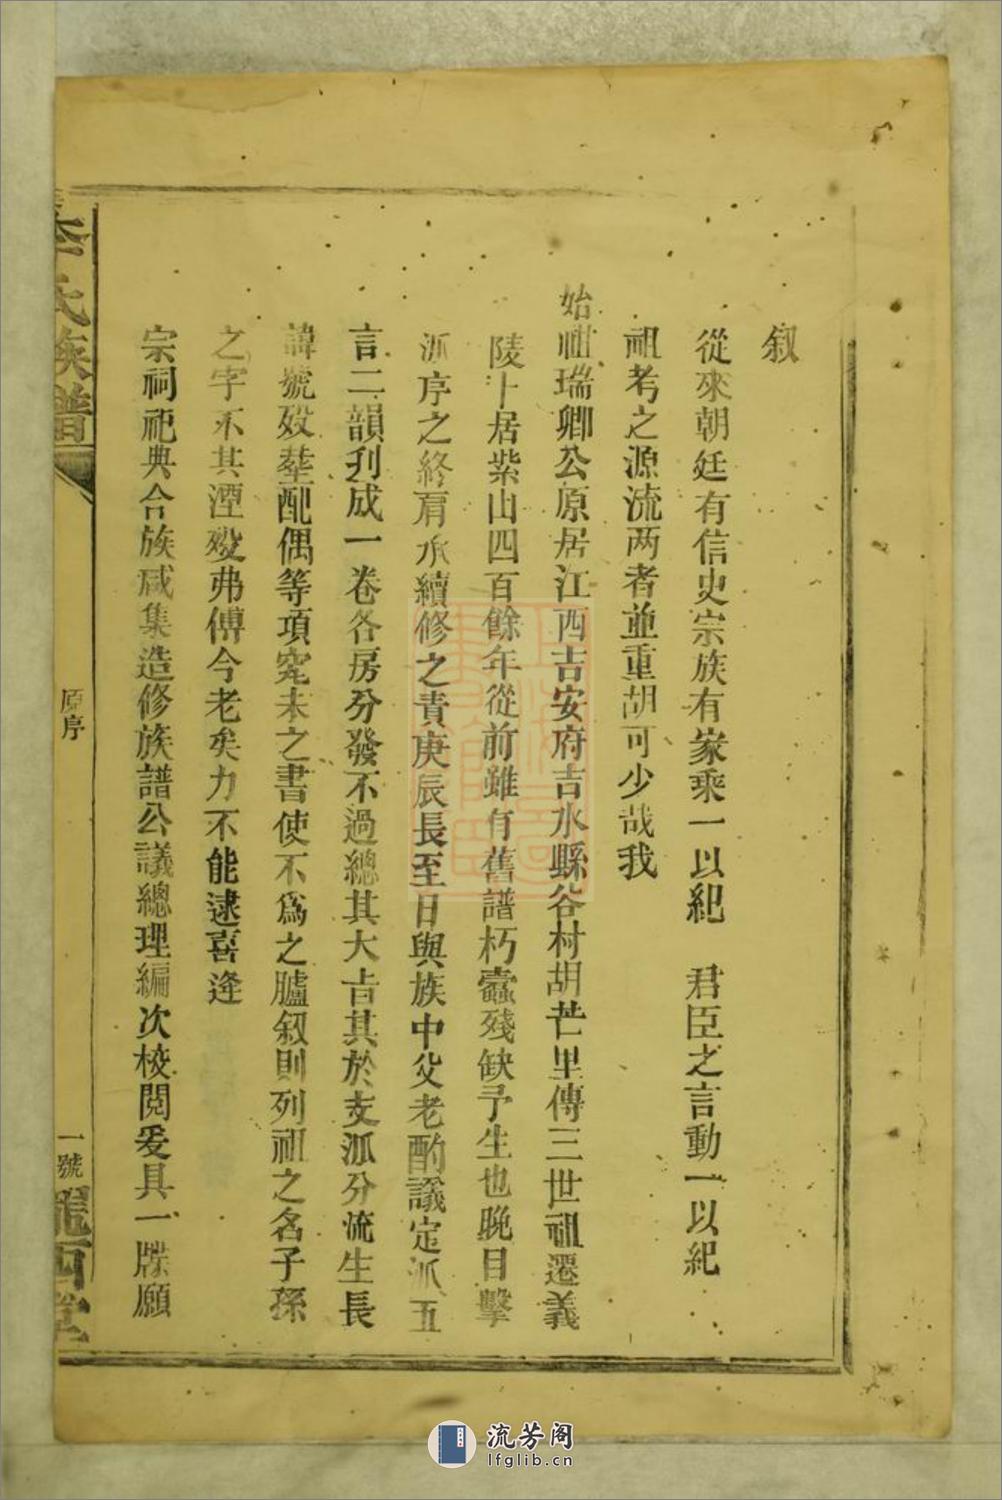 叙
從來朝廷有信史宗族有家乘一以紀 君臣之言動一以紀
祖考之源流两者並重胡可少哉我
始祖瑞卿公原居江西吉安府吉水縣谷村胡芒里傳三世祖遷義
陵卜居紫山四百餘年從前雖有舊譜朽蠹殘缺予生也晚目擊
派序之終肩承續修之責庚辰長至日與族中父老酌議定派五
言二韻刋成一卷各房分發不過總其大㫖其於支派分流生長
諱號殁塟配偶等項究未之書使不爲之臚叙則列祖之名子孫
之字不其湮殁弗傳今老矣力不能逮喜逢
宗祠祀典合族咸集造修族譜公議總理編次校閱爰具一牒願
李氏族譜
原序
一號
隴西堂
流芳阁
lfglib.cn